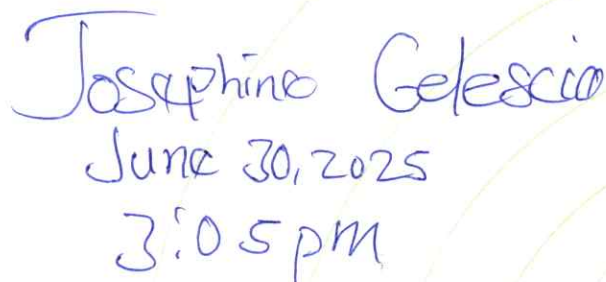 Josephine Gelescio
June 30, 2025
3:05 pm